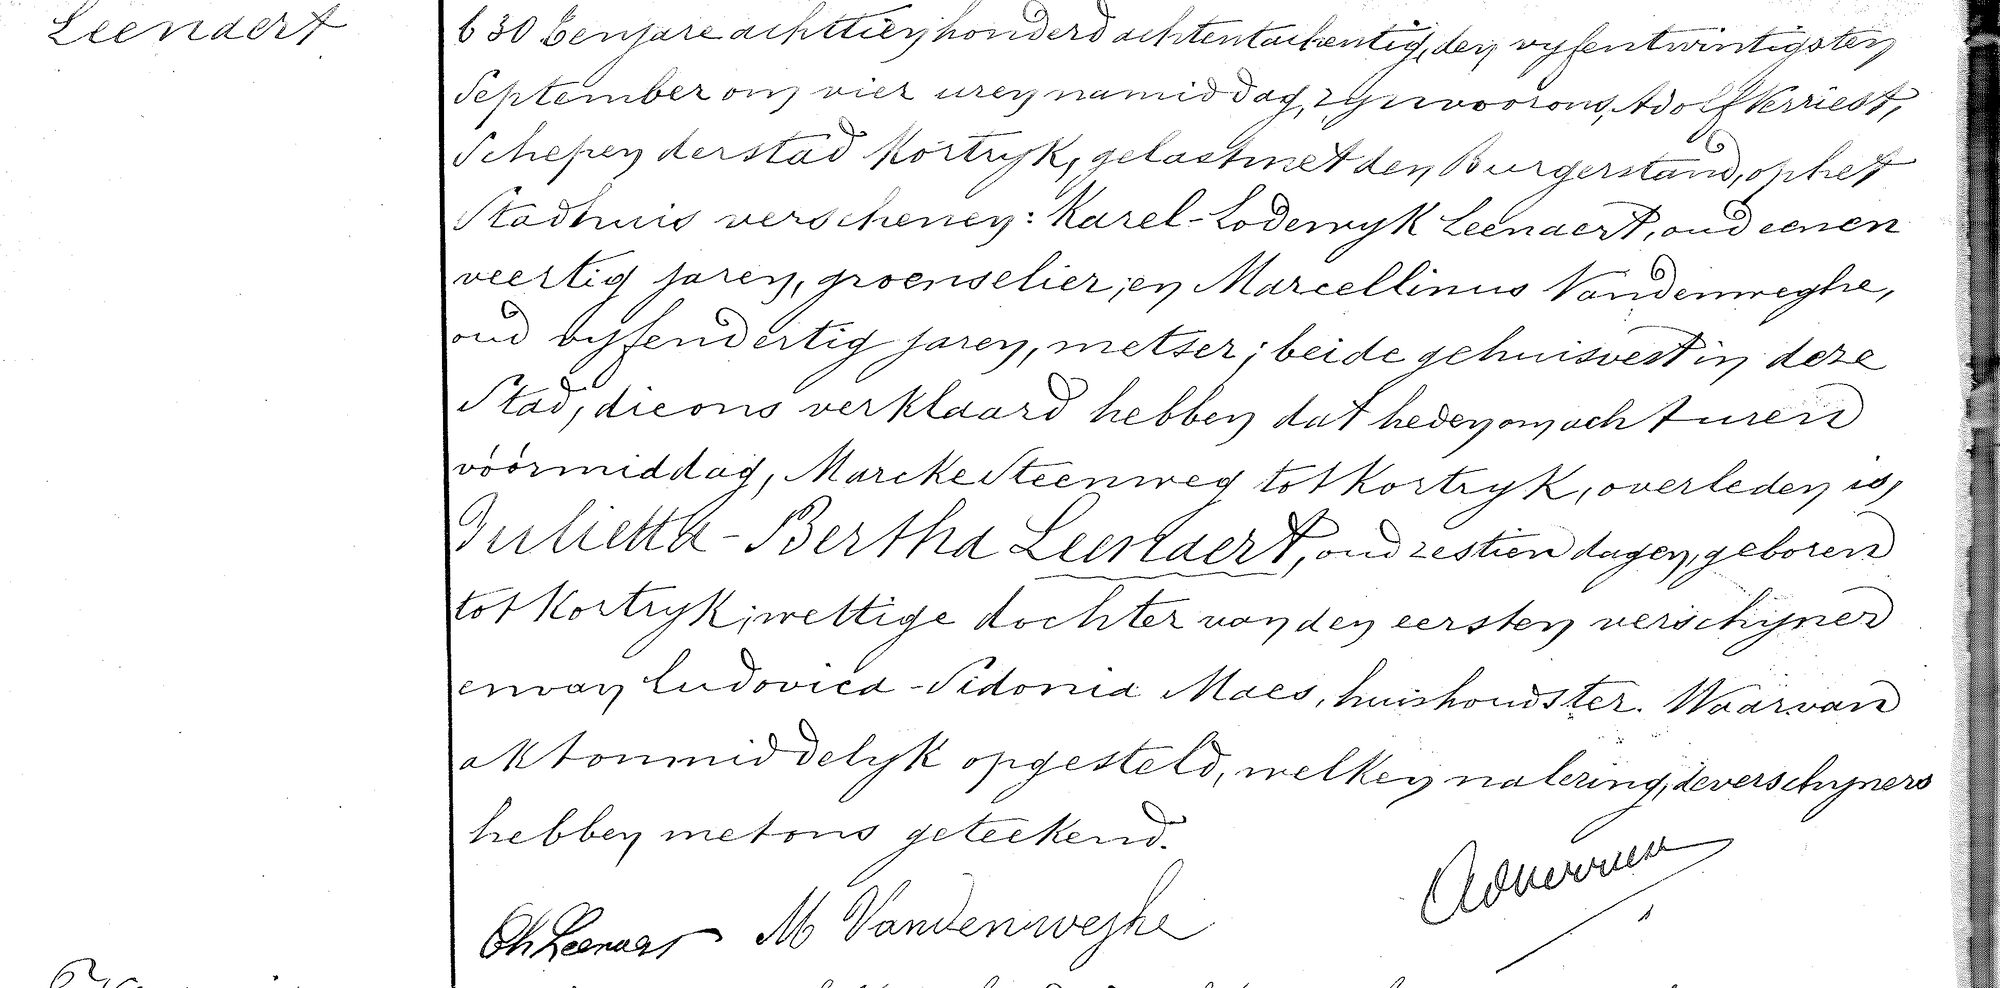 Leenaert
630 Eenjare achttien honderd achtentachentig, den vyfentwintigsten
September om vier uren namiddag, zyn voor ons, Adolf Verriest,
Schepen der stad Kortryk, gelast met den Burgerstand, op het
Stadhuis verschenen: Karel-Lodewyk Leenaert, oud eenen
veertig jaren, groenselier; en Marcellinus Vandenweghe,
oud vyfendertig jaren, metser; beide gehuisvest in deze
Stad, die ons verklaard hebben dat heden om acht uren
vóórmiddag, Marcke Steenweg tot Kortryk, overleden is,
Julietta-Bertha Leenaert, oud zestien dagen, geboren
tot Kortryk; wettige dochter van den eersten verschyner
en van Ludovica-Sidonia Maes, huishoudster. Waarvan
akt onmiddelyk opgesteld, welken na lezing, de verschyners
hebben met ons geteekend.
Ch Leenaert M Vandenweghe AdVerriest